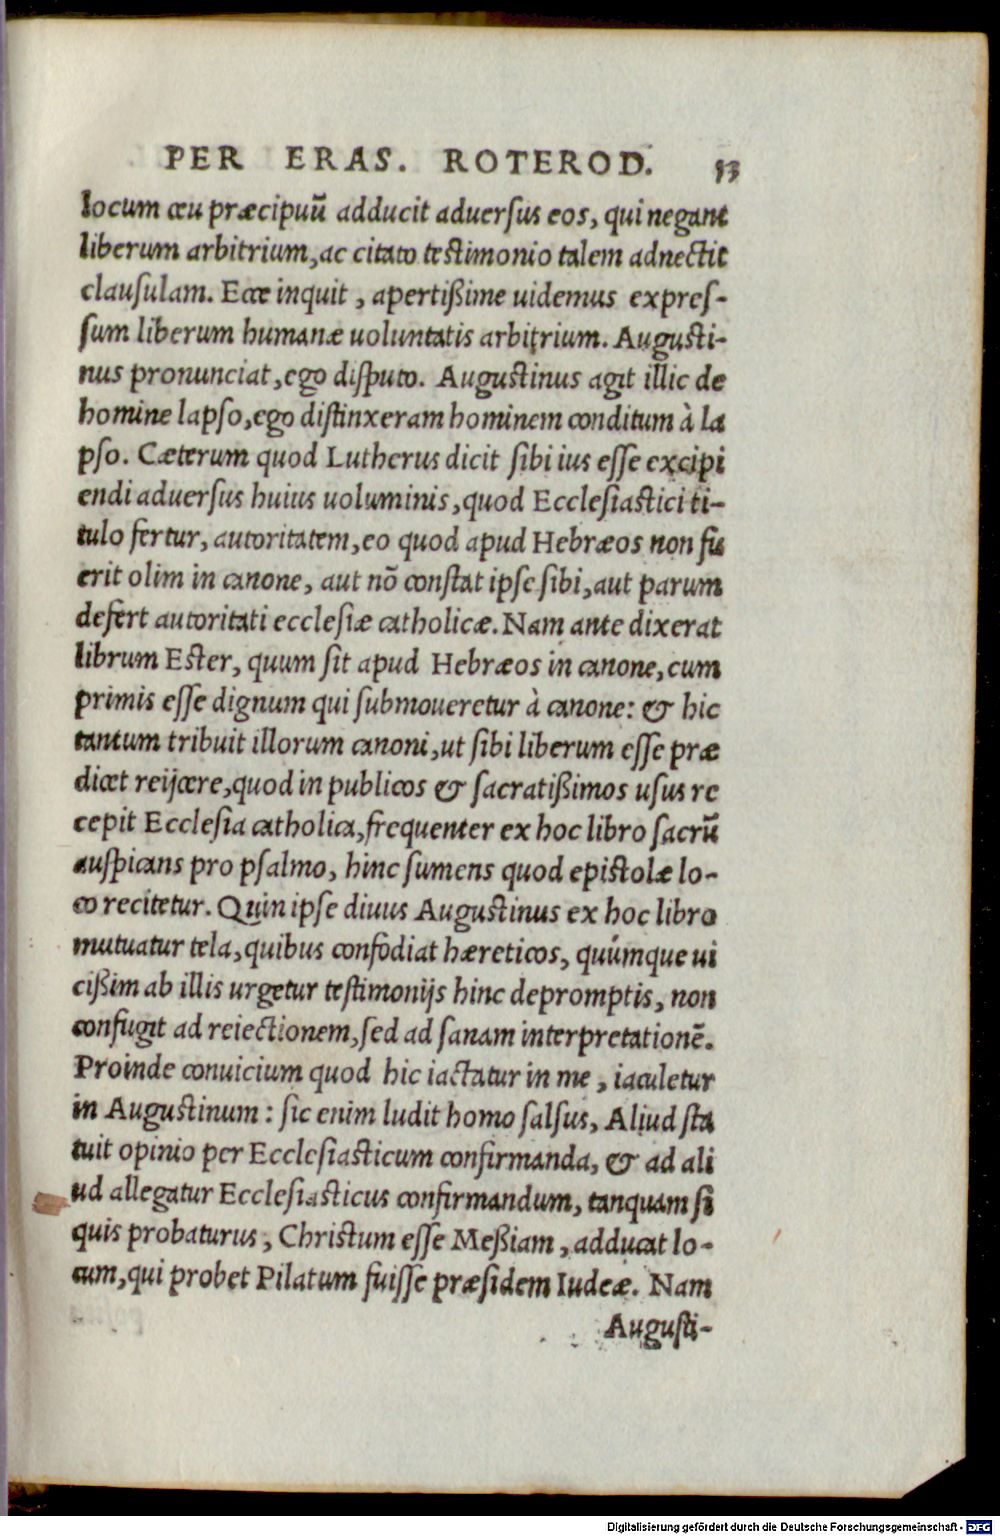 PER ERAS. ROTEROD. 53
locum ceu præcipuũ adducit aduersus eos, qui negant
liberum arbitrium, ac citato testimonio talem adnectit
clausulam. Ecce inquit, apertißime uidemus expres-
sum liberum humanæ uoluntatis arbitrium. Augusti-
nus pronunciat, ego disputo. Augustinus agit illic de
homine lapso, ego distinxeram hominem conditum à la
pso. Cæterum quod Lutherus dicit sibi ius esse excipi
endi aduersus huius uoluminis, quod Ecclesiastici ti-
tulo fertur, autoritatem, eo quod apud Hebræos non fu
erit olim in canone, aut nõ constat ipse sibi, aut parum
defert autoritati ecclesiæ catholicæ. Nam ante dixerat
librum Ester, quum sit apud Hebræos in canone, cum
primis esse dignum qui submoueretur à canone: & hic
tantum tribuit illorum canoni, ut sibi liberum esse præ
dicet reijcere, quod in publicos & sacratißimos usus re
cepit Ecclesia catholica, frequenter ex hoc libro sacrũ
auspicans pro psalmo, hinc sumens quod epistolæ lo-
co recitetur. Quin ipse diuus Augustinus ex hoc libro
mutuatur tela, quibus confodiat hæreticos, quúmque ui
cißim ab illis urgetur testimonijs hinc depromptis, non
confugit ad reiectionem, sed ad sanam interpretationẽ.
Proinde conuicium quod hic iactatur in me, iaculetur
in Augustinum: sic enim ludit homo salsus, Aliud sta
tuit opinio per Ecclesiasticum confirmanda, & ad ali
ud allegatur Ecclesiasticus confirmandum, tanquam si
quis probaturus, Christum esse Meßiam, adducat lo-
cum, qui probet Pilatum fuisse præsidem Iudeæ. Nam
Augusti-
Digitalisierung gefördert durch die Deutsche Forschungsgemeinschaft - DFG